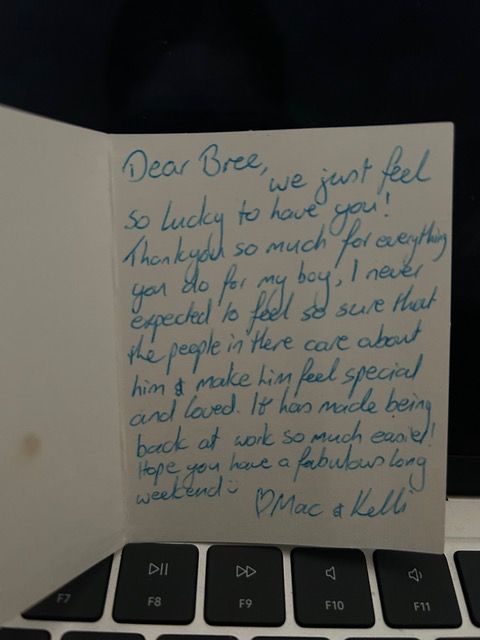 Dear Bree,
we just feel
so lucky to have you!
Thankyou so much for everything
you do for my boy, I never
expected to feel so sure that
the people in there care about
him & make him feel special
and loved. It has made being
back at work so much easier!
Hope you have a fabulous long
weekend :)
♡Mac & Kelli
F7
F8
F9
F10
F11